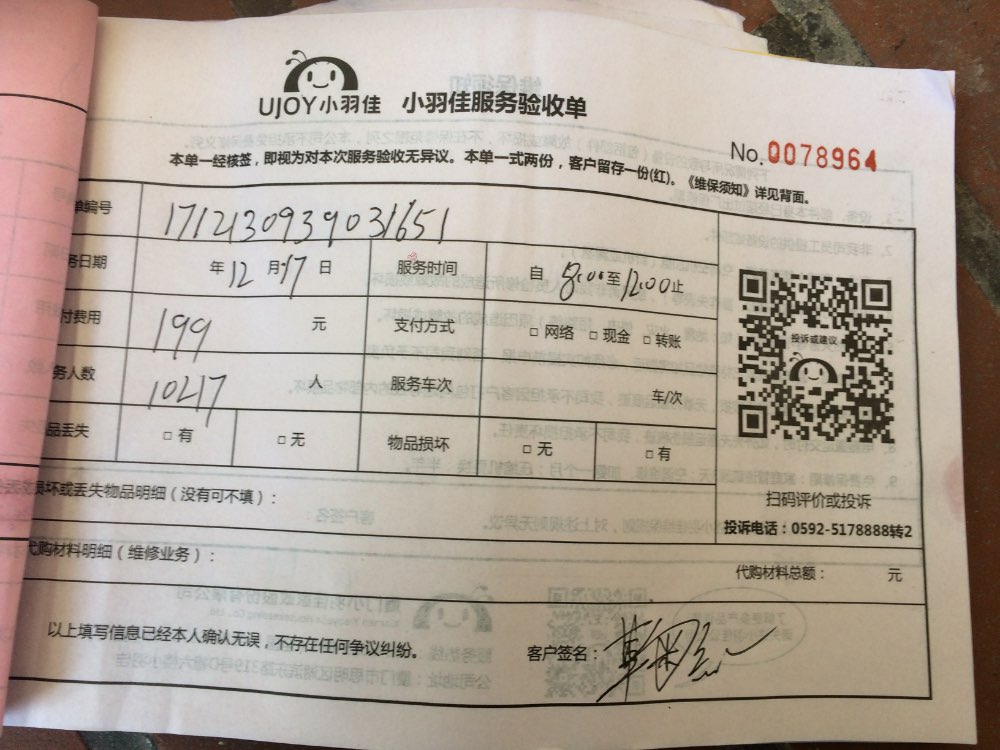 UJOY小羽佳 小羽佳服务验收单
No.0078964
本单一经核签，即视为对本次服务验收无异议。本单一式两份，客户留存一份(红)。《维保须知》详见背面。
单编号 1712130939031651
务日期 年 12 月 17 日 服务时间 自 8:00 至 12:00 止
付费用 199 元 支付方式 □ 网络 □ 现金 □ 转账
投诉或建议
务人数 10217 人 服务车次 车/次
品丢失 □ 有 □ 无 物品损坏 □ 无 □ 有
损坏或丢失物品明细（没有可不填）：
扫码评价或投诉
投诉电话：0592-5178888转2
代购材料明细（维修业务）：
代购材料总额： 元
以上填写信息已经本人确认无误，不存在任何争议纠纷。 客户签名：